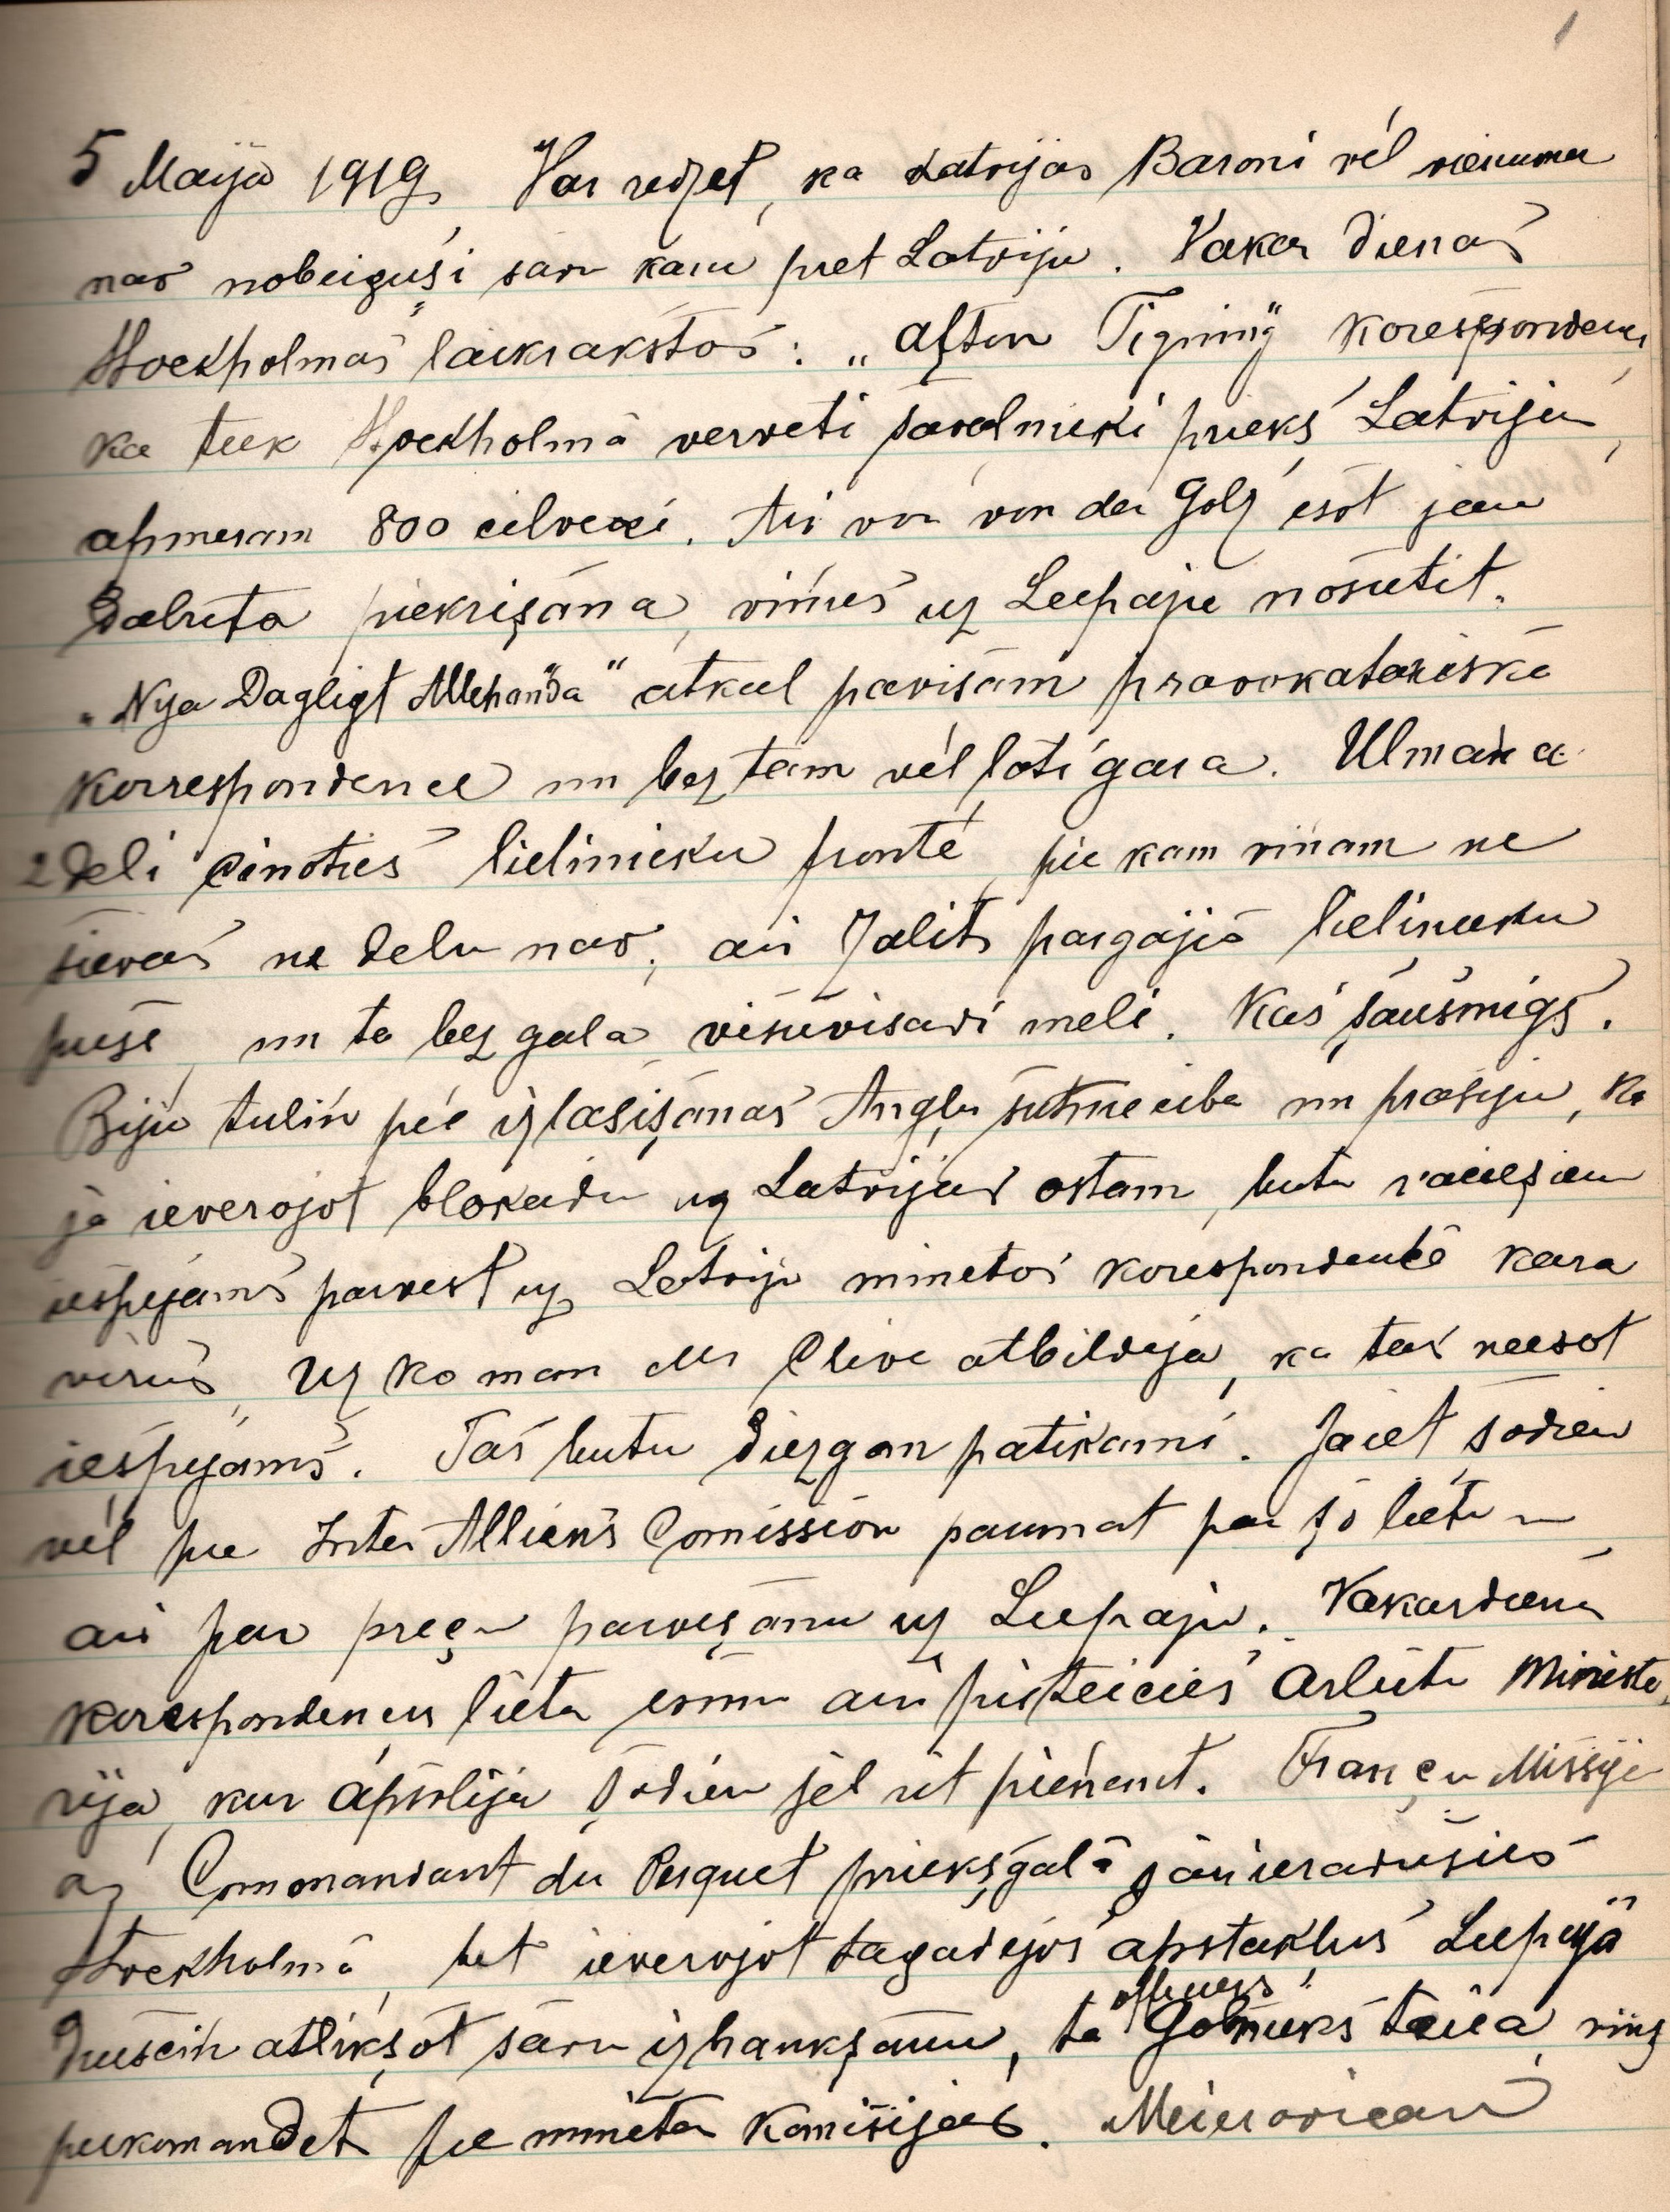 1
5 Maija 1919 Var redzet, ka Latvijas Baroni vēl vienumer
nav nobeiguši savu karu pret Latviju. Vakar dienas
Stockholmas laikrakstos: „Aften Tigning" Korespondence,
ka teek Stockholmā verveti savalnieki prieks Latvijas,
apmeram 800 cilveki. Ari von von der Golz esot jau
dabuta piekrišana, viņus uz Leepaju nosutit.
„Nya Dagligt Allehanda" atkal pavisam pravokatoriska
Korrespondence un bez tam vēl loti gara. Ulmaņa
2 deli cinoties lielinieku frontē, pie kam viņam ne
sievas ne delu nav, ari Zalits pargajis lielineeku
puse, un ta bez gala visuvisadi meli. Kas šausmigs.
Biju tulin pēc izlasišanas Angļu sutneciba un prasiju, ka
ja ieverojot blokadu uz Latvijas ostam, butu vaciešiem
iespejams parvest uz Latviju minetos korespondencē kara
virus, uz ko man Mr Clive atbildeja, ka tas neesot
iespejams. Tas butu diezgan patikami. Jaiet šodien
vēl pie Inter Alliens Comission parunat par šo lietu un
ari par preçu parvešanu uz Leepaju. Vakardienas
Korespondences lieta esmu ari pieteicies Arlietu Ministe
rija, kur apsolija šodien jel rit pieņemt. Françu Missija
ar Commandant du Parquet priekšgalā jau ieradusies
Stockholmā, bet ieverojot tagadejos apstakļus Leepajā
atlikšot savu izbraukšanu, ta Golnieks teica, viņš
peekomandets pie minetas Komisijas. Meierovicam